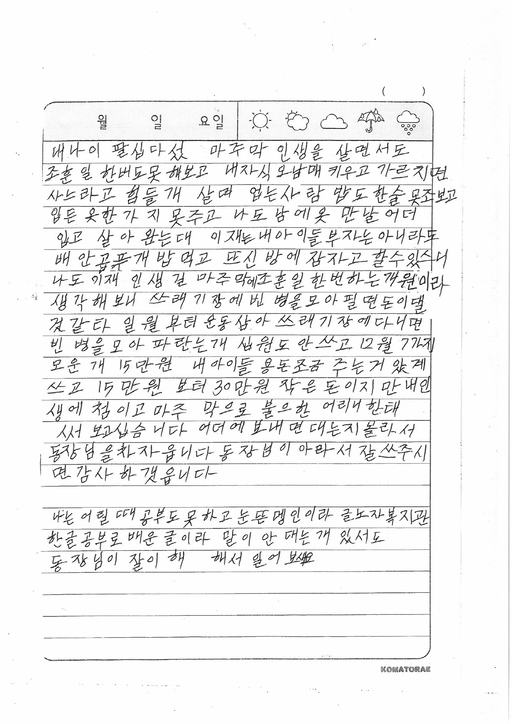 ( )
월 일 요일
내나이 팔십다섰 마주막 인생을 살면서도
조훈일 한버도못해보고 내자식오남매 키우고 가르치면
사느라고 힘들개 살며 업는사람 밥도한술못조보고
입든 옷한가지못주고 나도남에옷 만날어더
입고 살아왔는대 이재는내아이들부자는아니라도
배안곱푸개밥먹고 뜨신방에잠자고할수있스니
나도이재 인생길 마주막에조훈일한번하는개원이라
생각해보니 쓰래기장에빈병을모아필면돈이댈
것같타 일월부터운동삼아쓰래기장에다니면
빈병을모아파란는개십원도안쓰고12월7가지
모운개15만원 내아이들용돈조금주는거았게
쓰고15만원보터30만원작은돈이지만내인
생에첨이고마주막으로불으한어리니한태
써보고십습니다어더에보내면대는지몰라서
동장님을차자읍니다동장님이아라서잘쓰주시
면감사하겟읍니다
나는어릴때공부도못하고눈뜬맹인이라글노자복지관
한글공부로배운글이라 말이안대는개있서도
동장님이잘이해 해서일어보세요
KOMATORAE